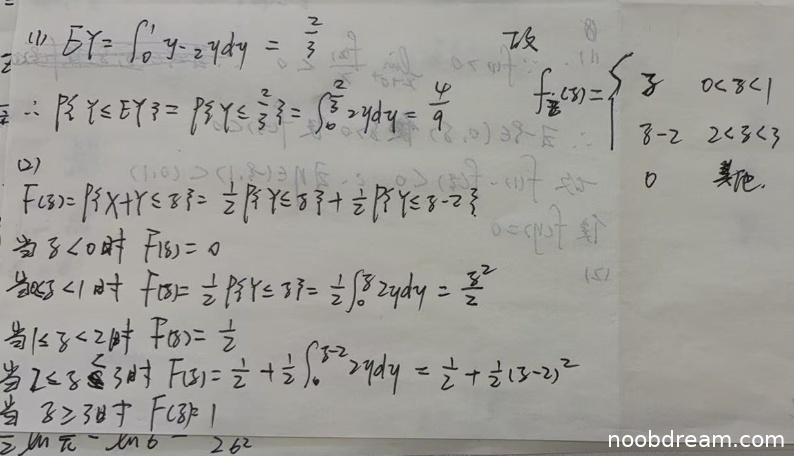 (1) EY = ∫₀¹ y·2y dy = 2/3
∴ P{Y ≤ EY} = P{Y ≤ 2/3} = ∫₀^(2/3) 2y dy = 4/9
(2)
F(z) = P{X+Y ≤ z} = 1/2 P{Y ≤ z} + 1/2 P{Y ≤ z-2}
当 z < 0 时 F(z) = 0
当 0≤z < 1 时 F(z) = 1/2 P{Y ≤ z} = 1/2 ∫₀^z 2y dy = z²/2
当 1 ≤ z < 2 时 F(z) = 1/2
当 2 ≤ z < 3 时 F(z) = 1/2 + 1/2 ∫₀^(z-2) 2y dy = 1/2 + 1/2 (z-2)²
当 z ≥ 3 时 F(z) = 1
故
f_Z(z) = { z 0<z<1
z-2 2<z<3
0 其他.
noobdream.com